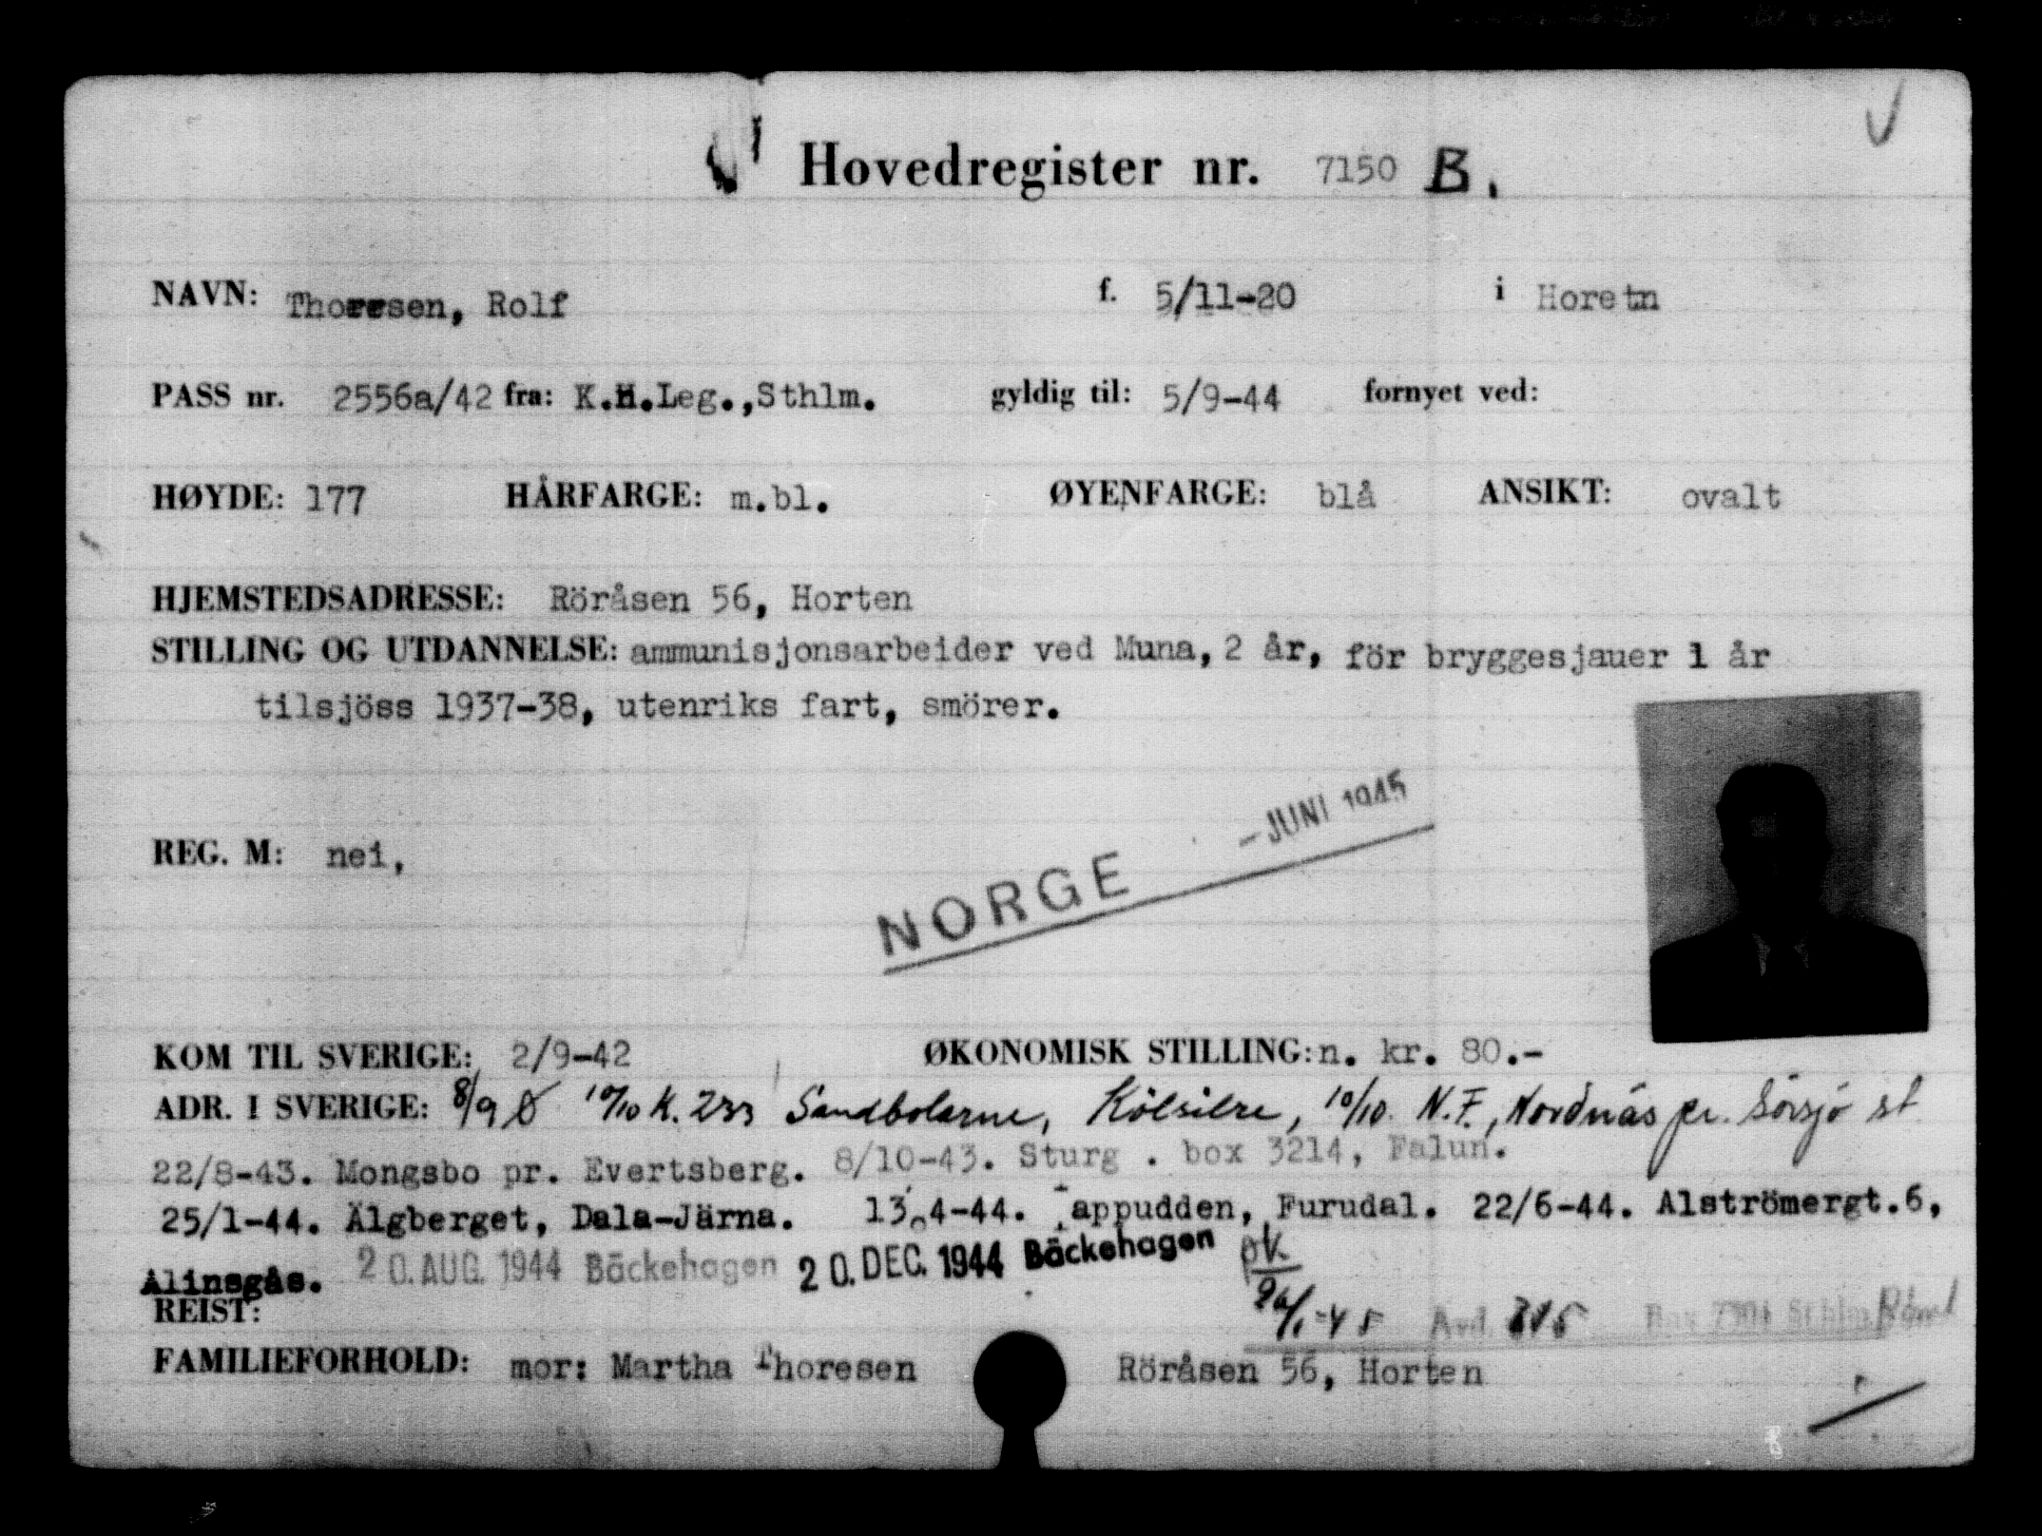 Hovedregister nr. 7150 B.
NAVN: Thoresen, Rolf f. 5/11-20 i Horetn
PASS nr. 2556a/42 fra: K.H.Leg.,Sthlm. gyldig til: 5/9-44 fornyet ved:
HØYDE: 177 HÅRFARGE: m.bl. ØYENFARGE: blå ANSIKT: ovalt
HJEMSTEDSADRESSE: Röråsen 56, Horten
STILLING OG UTDANNELSE: ammunisjonsarbeider ved Muna, 2 år, för bryggesjauer 1 år
tilsjöss 1937-38, utenriks fart, smörer.
REG. M: nei,
NORGE - JUNI 1945
KOM TIL SVERIGE: 2/9-42 ØKONOMISK STILLING: n. kr. 80.-
ADR. I SVERIGE: 8/9 Ö 10/10 K. 233 Sandbolarne, 10/10. N.F., Nordnäs pr. Sörsjö st
22/8-43. Mongsbo pr. Evertsberg. 8/10-43. Sturg . box 3214, Falun.
25/1-44. Älgberget, Dala-Järna. 13.4-44. appudden, Furudal. 22/6-44. Alströmergt.6,
Alinsgås. 20. AUG. 1944 Bäckehagen 20. DEC. 1944 Bäckehagen
REIST:
FAMILIEFORHOLD: mor: Martha Thoresen Röråsen 56, Horten